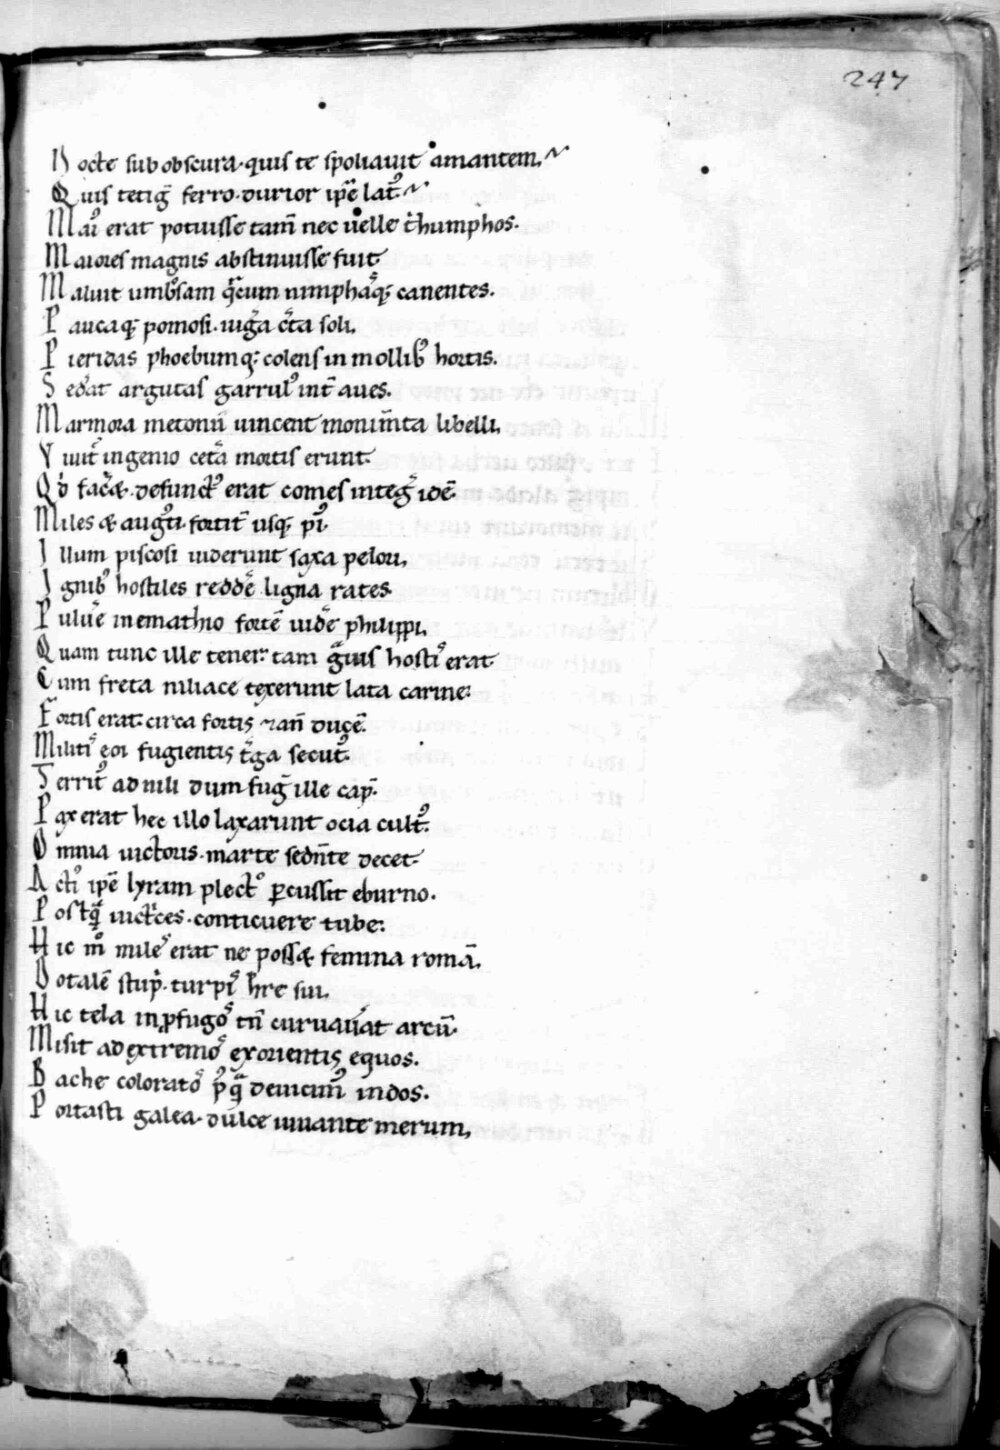 247
Nocte sub obscura. quis te spoliauit amantem.
Quis tetig̅ ferro. durior ip̅e lat᷒.
Maĩ erat potuisse tam̅ nec uelle t̉humphos.
Maiores magnis abstinuisse fuit
Maluit umb᷒sam q̃cum nimphaq̃; canentes.
Paucaq; pomosi. iug̃a c̃ta soli,
Pieridas phoebumq; colens in mollib᷒ hortis.
Sed̃at argutas garrul᷒ int̅ aues.
Marmora meonii uincent monum̅ta libelli,
Viuit̉ ingenio cet̃a mortis erunt.
Qd̉ fac̃æ. defunct᷒ erat comes integ̃ idē
Miles & aug̉ti. fortit̅ usq; pi᷒.
Illum piscosi uiderunt saxa pelori,
Ignib᷒ hostiles redd̉e ligna rates.
Puluẽ inemathio fortē uidẽ philippi,
Quam tunc ille tener: tam g̃uis hosti᷒ erat
Cum freta niliace texerunt lata carine:
Fortis erat: circa fortis ⁊ an̅ ducē.
Militi᷒ eoi fugientis t̉ga secut᷒.
Territ᷒ ad nili dum fug̅ ille cap᷒.
Pax erat hec illo laxarunt ocia cult᷒.
Omnia uictoris. marte sedn̅te decet
Acti᷒ ip̅e lyram plect᷒ ꝑcussit eburno.
Postq̃ uict̉ces. conticuere tube:
Hic m᷒ mile᷒ erat ne possæ femina romā.
Dotalē stup̉. turpi᷒ h̅re sui,
Hic tela in ꝓfugo᷒ tn̅ curuauat arcū.
Misit ad extremo᷒ exorientis equos.
Bache colorato᷒ p᷒q̃ deuicim᷒ indos.
Portasti galea. dulce iuuante merum,